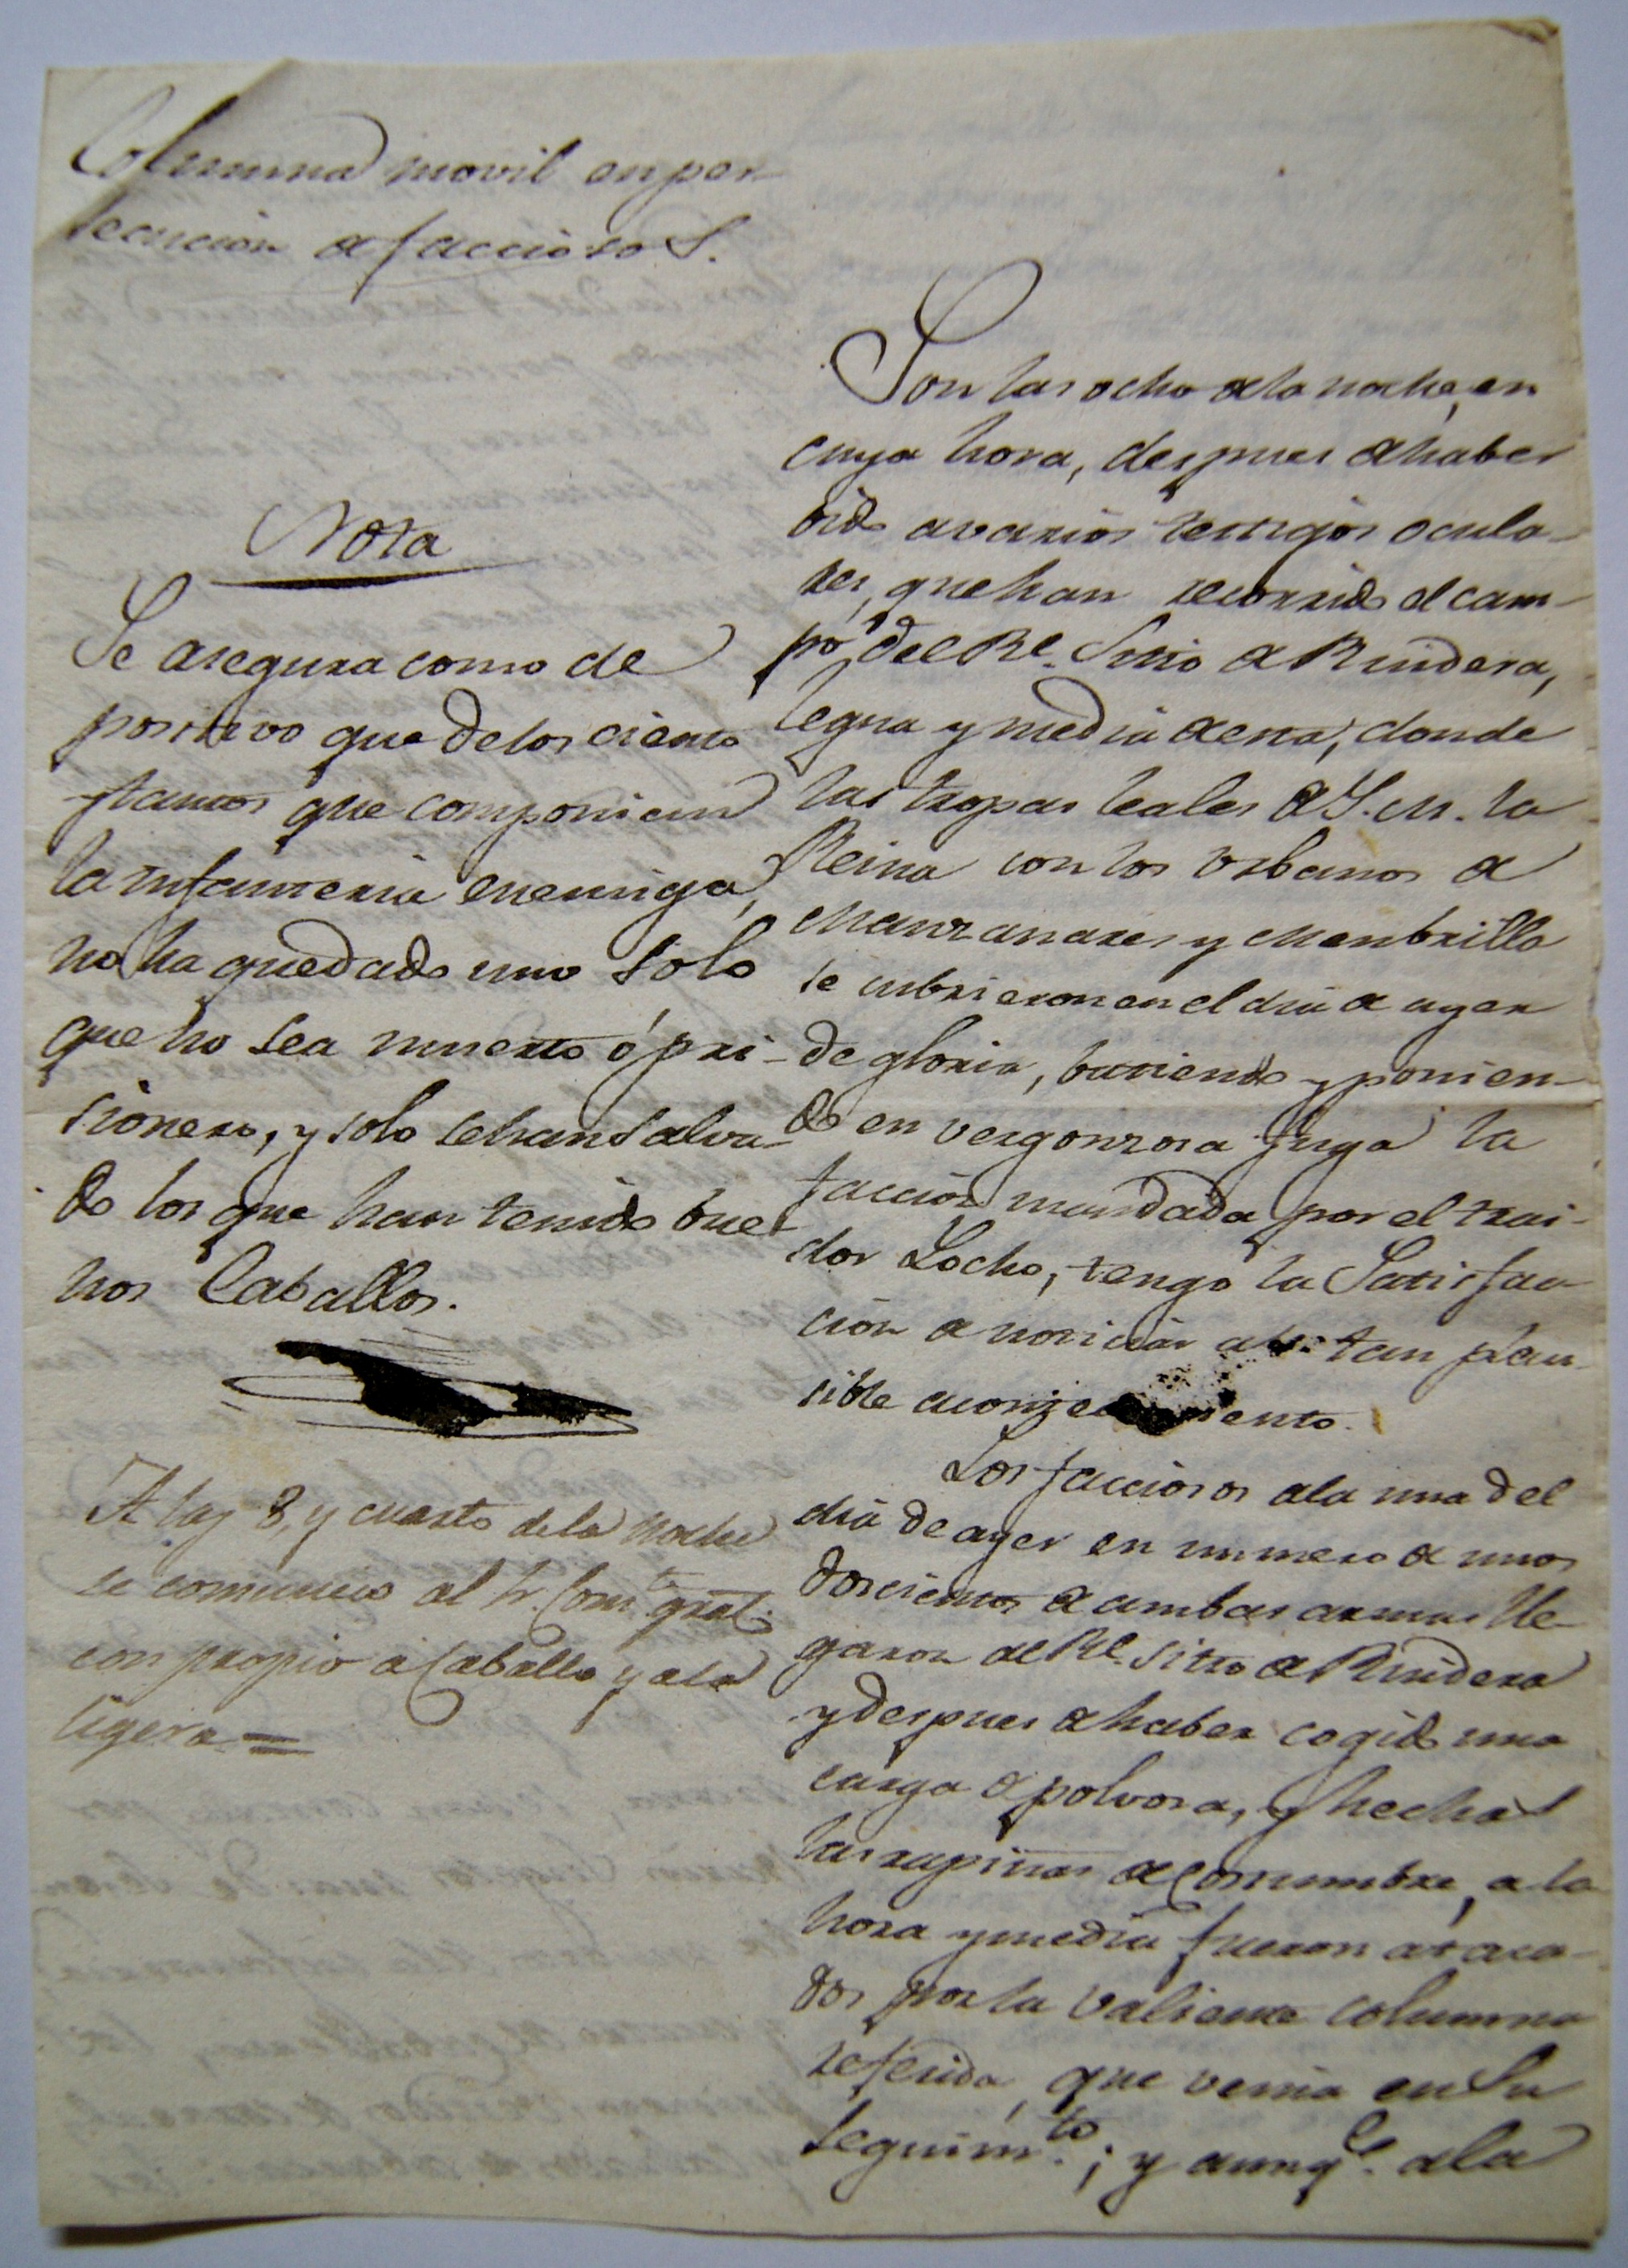 Columna movil en per-
secucion a facciosos.
Nota
Se asegura como de
positivo que de los ciento
y tantos que componian
la infanteria enemiga,
no ha quedado uno solo
que no sea muerto ó pri-
sionero, y solo se han salva-
do los que han tenido bue-
nos Caballos.
A las 8, y cuarto de la noche
se comunicó al Sr. Comte. gral.
con propio á Caballo y a la
ligera =
Son las ocho de la noche, en
cuya hora, despues de haber
oido a varios testigos ocula-
res, que han recorrido el cam-
po del Rl. Sitio de Ruidera,
legua y media de esta, donde
las tropas leales de S. M. la
Reina con los Urbanos de
Manzanares y Menbrilla
se cubrieron en el dia de ayer
de gloria, batiendo y ponien-
do en vergonzosa fuga la
faccion mandada por el trai-
dor Locho, tengo la Satisfac-
ción de noticiar a V. tan plau-
sible acontecimiento.
Los facciosos a la una del
dia de ayer en numero de unos
doscientos de ambas armas lle-
garon al Rl. Sitio de Ruidera
y despues de haber cogido una
carga de polvora, y hechas
las rapiñas de Costumbre, a la
hora y media fueron ataca-
dos por la valiente columna
referida, que venia en su
seguimto.; y aunqe. a la